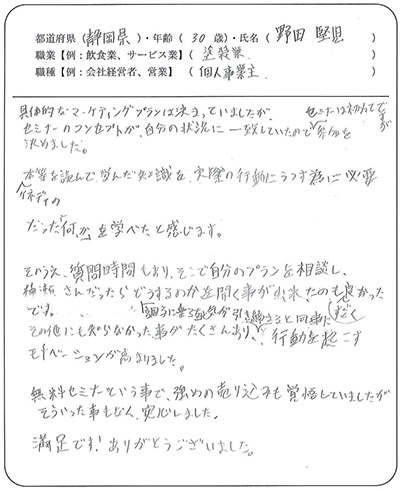 都道府県（静岡県）・年齢（30歳）・氏名（野田 堅児）
職業【例：飲食業、サービス業】（塗装業）
職種【例：会社経営者、営業】（個人事業主）
具体的なマーケティングプランは決まっていましたが、
セミナーは初めてですが
セミナーのコンセプトが、自分の状況に一致していたので参加を
決めました。
本等を読んで学んだ知識を、実際の行動にうつす為に必要
だった「何か」を学べたと感じます。
そのうえ、質問時間もあり、そこで自分のプランを相談し、
さんだったらどうするのかを聞く事が出来たのも良かった
です。
その他にも知らなかった事がたくさんあり、行動を起こす
モチベーションが高まりました。
無料セミナーという事で、強めの売り込みも覚悟していましたが
そういった事もなく、安心しました。
満足です！ありがとうございました。